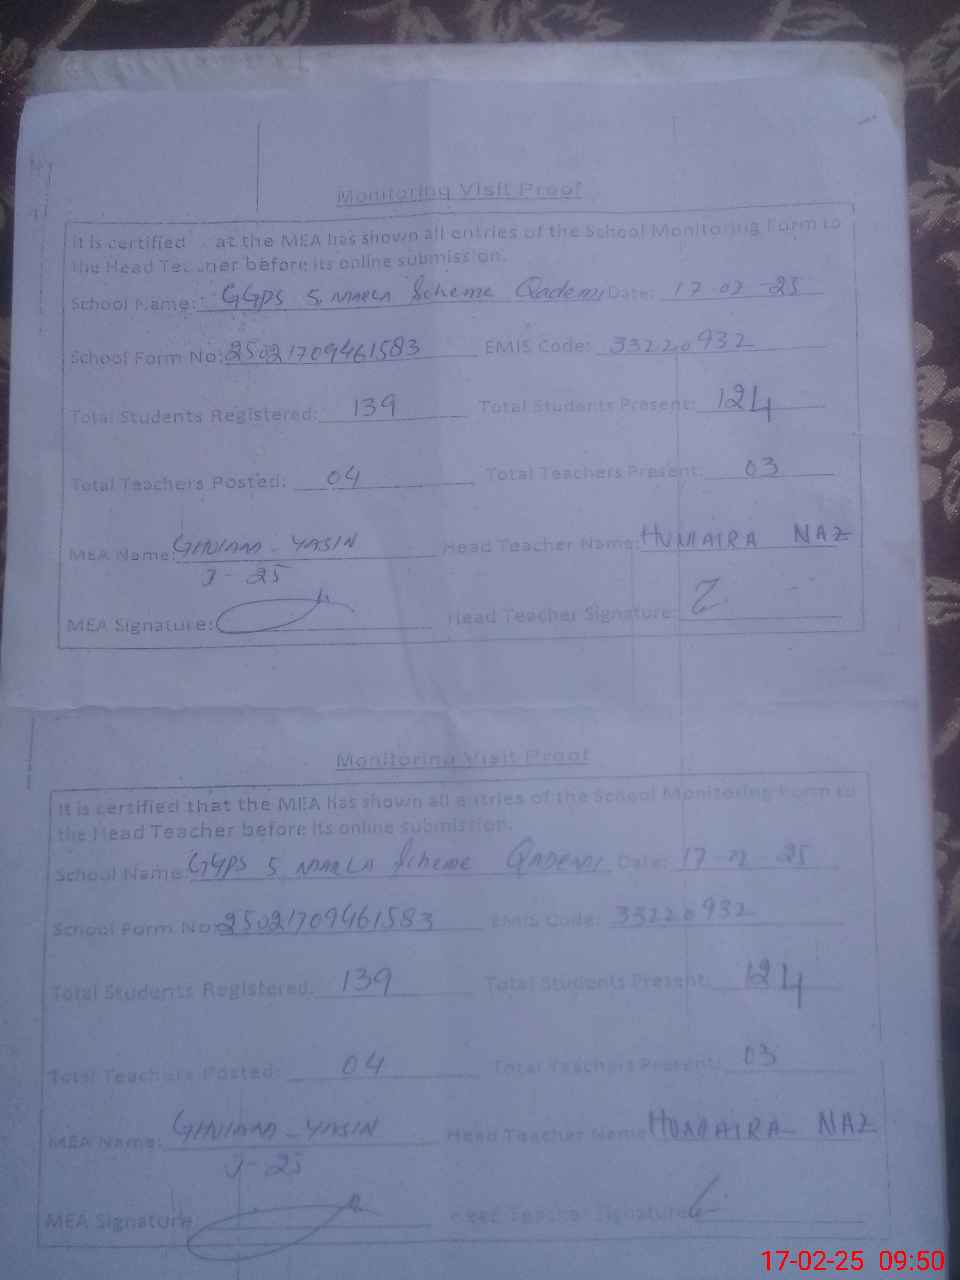 Monitoring Visit Proof
It is certified at the MEA has shown all entries of the School Monitoring Form to
the Head Teacher before its online submission.
School Name: GGPS 5 MARLA Scheme Qademi Date: 17-02-25
School Form No: 2502170946 1583 EMIS Code: 33220932
Total Students Registered: 139 Total Students Present: 124
Total Teachers Posted: 04 Total Teachers Present: 03
MEA Name: GHULAM-YASIN Head Teacher Name: HUMAIRA NAZ
J-25
MEA Signature: Head Teacher Signature:
Monitoring Visit Proof
It is certified that the MEA has shown all entries of the School Monitoring Form to
the Head Teacher before its online submission.
School Name: GGPS 5 MARLA Scheme QADEMI Date: 17-02-25
School Form No: 25021709461583 EMIS Code: 33220932
Total Students Registered: 139 Total Students Present: 124
Total Teachers Posted: 04 Total Teachers Present: 03
MEA Name: GHULAM-YASIN Head Teacher Name HUMAIRA NAZ
J-25
MEA Signature Head Teacher Signature
17-02-25 09:50